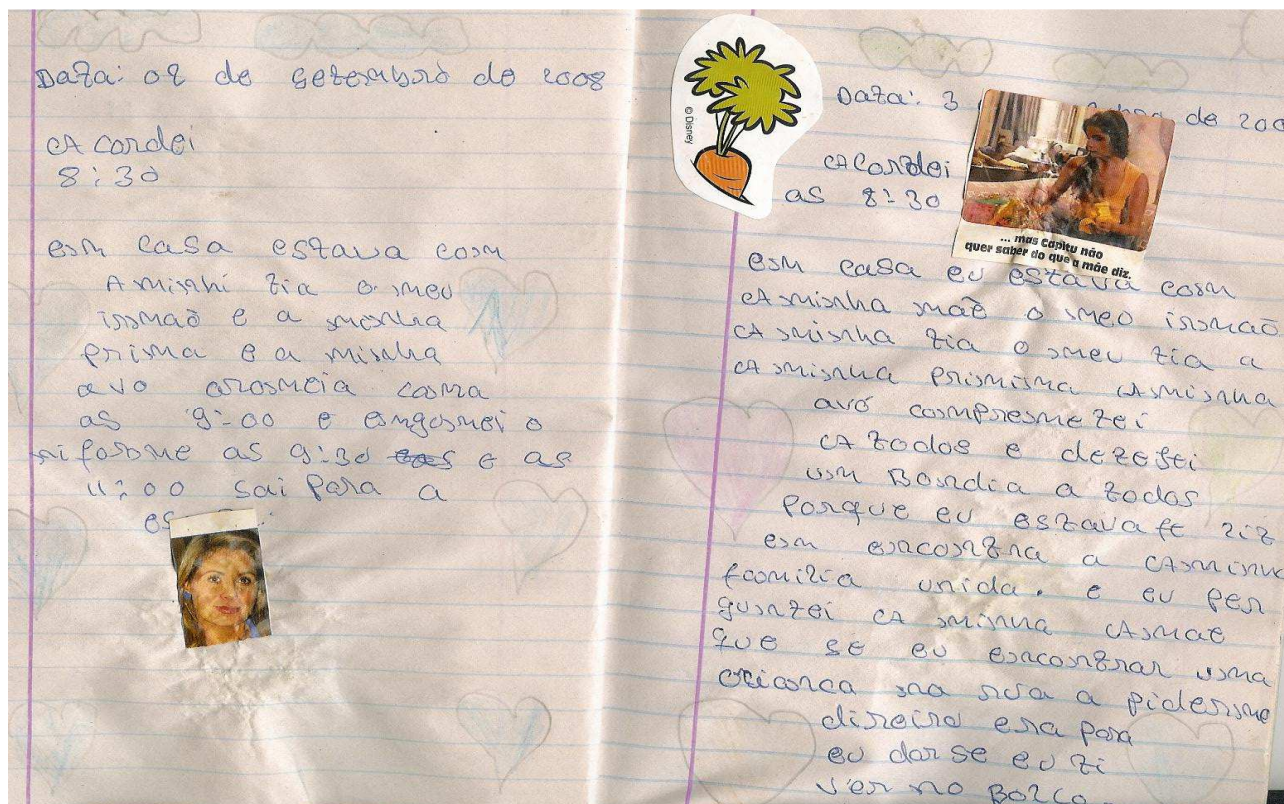 Data: 02 de setembro de 2008
Acordei
8:30
em casa estava com
A minhi tia o meu
irmão e a minha
prima e a minha
avo
as 9:00 e engomei o
niforme as 9:30 e as
11:00 sai para a
© Disney
Data: 3 de 200
Acordei
as 8:30
... mas Capitu não
quer saber do que a mãe diz.
em casa eu estava com
A minha maẽ o meo irmaõ
A minha tia o meu tia a
A minha primima A minha
avó compremetei
A todos e dezetei
um Bondia a todos
Porque eu estava fe liz
em encontra a A minha
familia unida. e eu per
guntei A minha A mae
que se eu encontrar uma
crianca na rua a pidenme
dineiro era para
eu dar se eu ti
ver no Bolco